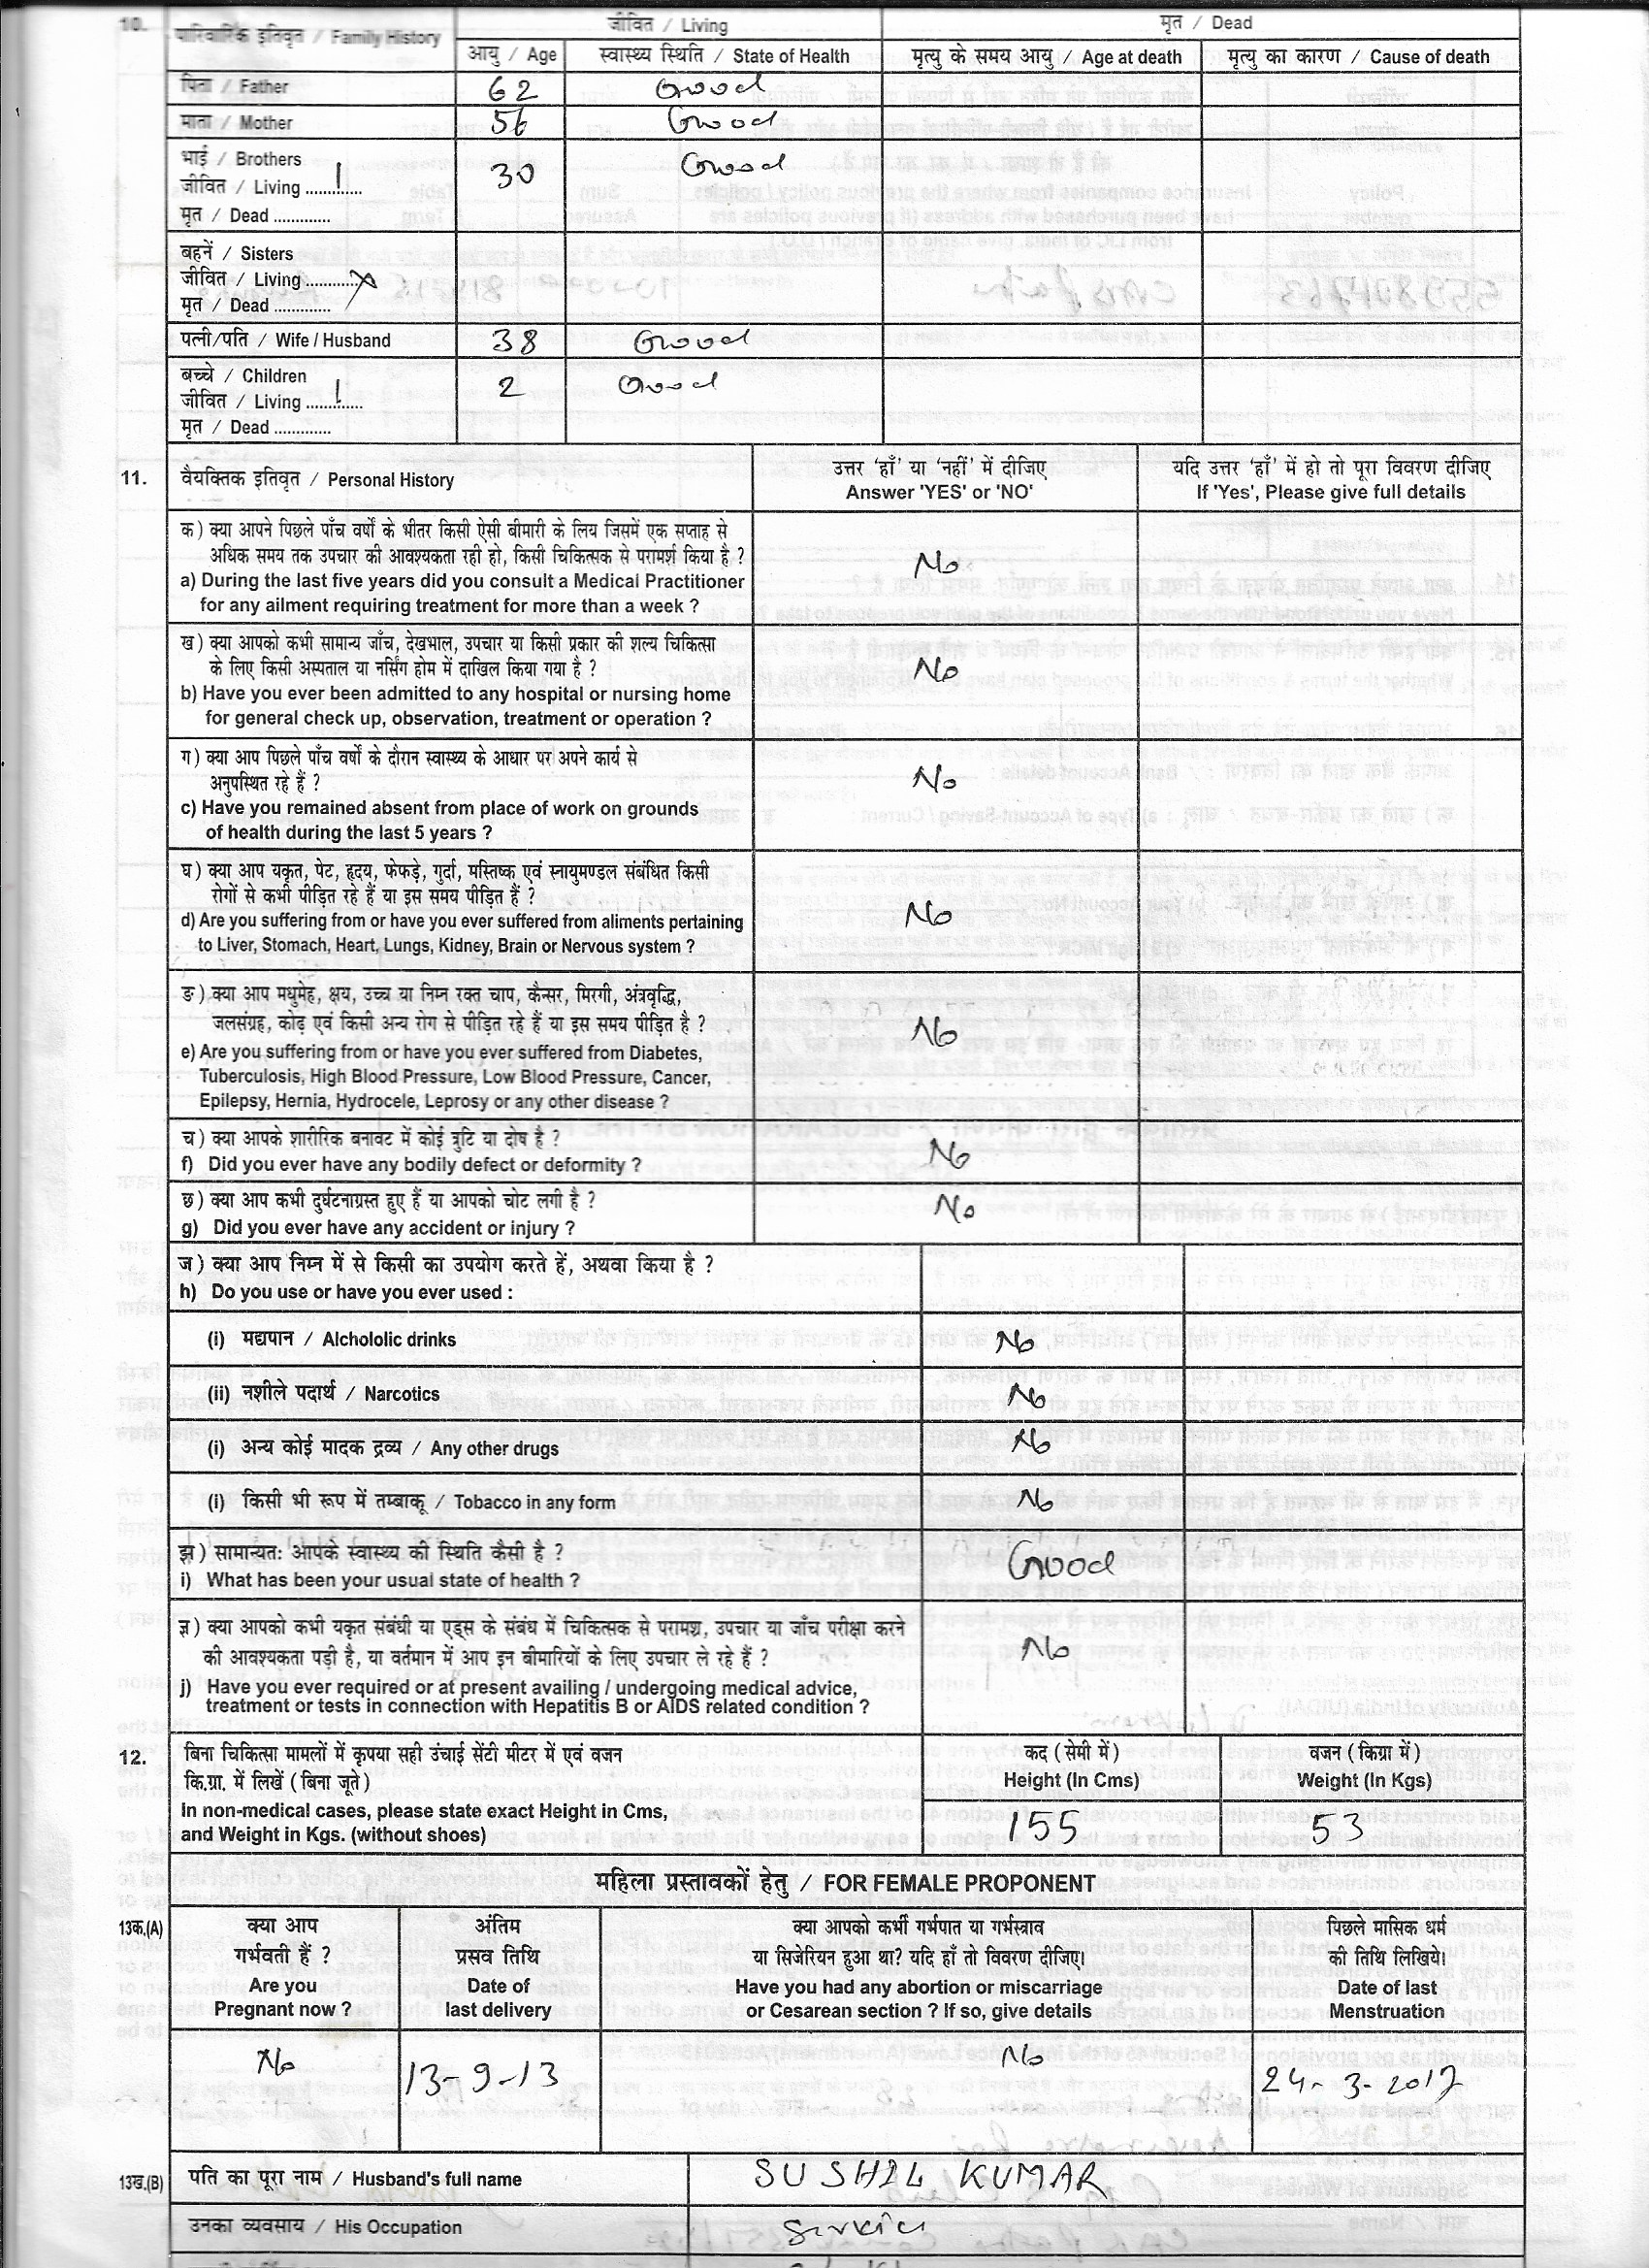 10. पारिवारिक इतिवृत / Family History जीवित / Living मृत / Dead
आयु / Age स्वास्थ्य स्थिति / State of Health मृत्यु के समय आयु / Age at death मृत्यु का कारण / Cause of death
पिता / Father 62 Good
माता / Mother 56 Good
भाई / Brothers
जीवित / Living ...1... 30 Good
मृत / Dead .............
बहनें / Sisters
जीवित / Living ...........X
मृत / Dead .............
पत्नी/पति / Wife / Husband 38 Good
बच्चे / Children
जीवित / Living ...1... 2 Good
मृत / Dead .............
11. वैयक्तिक इतिवृत / Personal History
उत्तर 'हाँ' या 'नहीं' में दीजिए
Answer 'YES' or 'NO'
यदि उत्तर 'हाँ' में हो तो पूरा विवरण दीजिए
If 'Yes', Please give full details
क) क्या आपने पिछले पाँच वर्षों के भीतर किसी ऐसी बीमारी के लिय जिसमें एक सप्ताह से
अधिक समय तक उपचार की आवश्यकता रही हो, किसी चिकित्सक से परामर्श किया है ?
a) During the last five years did you consult a Medical Practitioner
for any ailment requiring treatment for more than a week ?
No
ख) क्या आपको कभी सामान्य जाँच, देखभाल, उपचार या किसी प्रकार की शल्य चिकित्सा
के लिए किसी अस्पताल या नर्सिंग होम में दाखिल किया गया है ?
b) Have you ever been admitted to any hospital or nursing home
for general check up, observation, treatment or operation ?
No
ग) क्या आप पिछले पाँच वर्षों के दौरान स्वास्थ्य के आधार पर अपने कार्य से
अनुपस्थित रहे हैं ?
c) Have you remained absent from place of work on grounds
of health during the last 5 years ?
No
घ) क्या आप यकृत, पेट, हृदय, फेफड़े, गुर्दा, मस्तिष्क एवं स्नायुमण्डल संबंधित किसी
रोगों से कभी पीड़ित रहे हैं या इस समय पीड़ित हैं ?
d) Are you suffering from or have you ever suffered from aliments pertaining
to Liver, Stomach, Heart, Lungs, Kidney, Brain or Nervous system ?
No
ङ) क्या आप मधुमेह, क्षय, उच्च या निम्न रक्त चाप, कैन्सर, मिरगी, अंत्रवृद्धि,
जलसंग्रह, कोढ़ एवं किसी अन्य रोग से पीड़ित रहे हैं या इस समय पीड़ित है ?
e) Are you suffering from or have you ever suffered from Diabetes,
Tuberculosis, High Blood Pressure, Low Blood Pressure, Cancer,
Epilepsy, Hernia, Hydrocele, Leprosy or any other disease ?
No
च) क्या आपके शारीरिक बनावट में कोई त्रुटि या दोष है ?
f) Did you ever have any bodily defect or deformity ?
No
छ) क्या आप कभी दुर्घटनाग्रस्त हुए हैं या आपको चोट लगी है ?
g) Did you ever have any accident or injury ?
No
ज) क्या आप निम्न में से किसी का उपयोग करते हें, अथवा किया है ?
h) Do you use or have you ever used :
(i) मद्यपान / Alchololic drinks No
(ii) नशीले पदार्थ / Narcotics No
(i) अन्य कोई मादक द्रव्य / Any other drugs No
(i) किसी भी रूप में तम्बाकू / Tobacco in any form No
झ) सामान्यतः आपके स्वास्थ्य की स्थिति कैसी है ?
i) What has been your usual state of health ?
Good
ज्ञ) क्या आपको कभी यकृत संबंधी या एड्स के संबंध में चिकित्सक से परामश्र, उपचार या जाँच परीक्षा करने
की आवश्यकता पड़ी है, या वर्तमान में आप इन बीमारियों के लिए उपचार ले रहे हैं ?
j) Have you ever required or at present availing / undergoing medical advice,
treatment or tests in connection with Hepatitis B or AIDS related condition ?
No
12. बिना चिकित्सा मामलों में कृपया सही उंचाई सेंटी मीटर में एवं वजन
कि.ग्रा. में लिखें (बिना जूते)
In non-medical cases, please state exact Height in Cms,
and Weight in Kgs. (without shoes)
कद (सेमी में)
Height (In Cms)
155
वजन (किग्रा में)
Weight (In Kgs)
53
महिला प्रस्तावकों हेतु / FOR FEMALE PROPONENT
13क.(A) क्या आप
गर्भवती हैं ?
Are you
Pregnant now ?
No
अंतिम
प्रसव तिथि
Date of
last delivery
13-9-13
क्या आपको कर्भी गर्भपात या गर्भस्त्राव
या सिजेरियन हुआ था? यदि हाँ तो विवरण दीजिए।
Have you had any abortion or miscarriage
or Cesarean section ? If so, give details
No
पिछले मासिक धर्म
की तिथि लिखिये।
Date of last
Menstruation
24-3-2017
13ख.(B) पति का पूरा नाम / Husband's full name SUSHIL KUMAR
उनका व्यवसाय / His Occupation Service